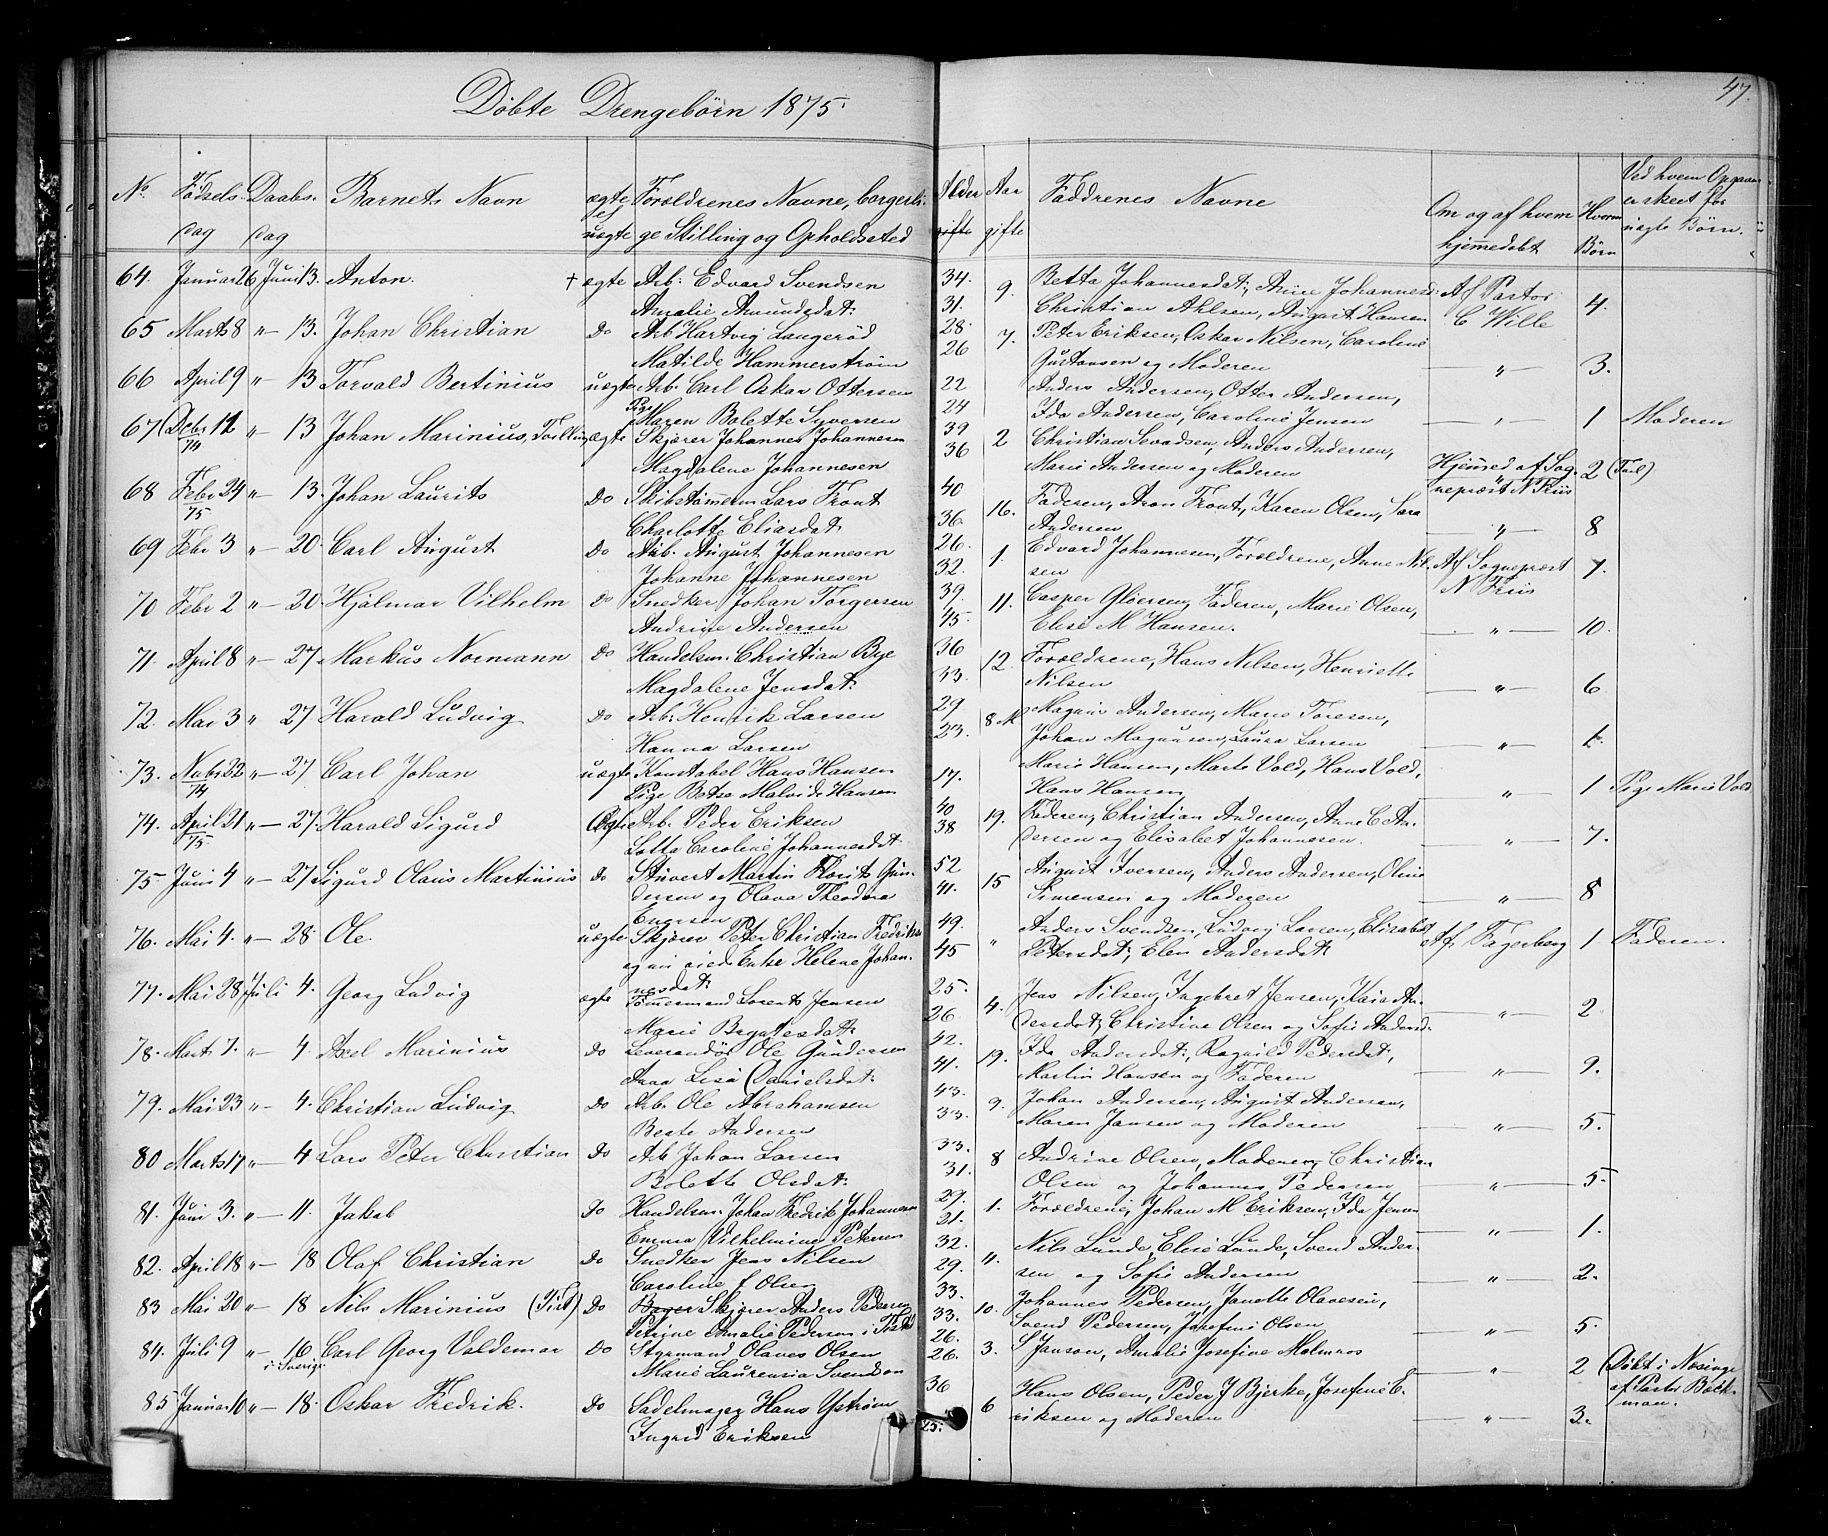 47.
Døbte Drengebørn 1875.
No. Fødsels- Daabs- Barnets Navn ægte Forældrenes Navne, borgerli- Alder Aar Faddrenes Navne Om og af hvem Hvorm Ved hvem Opgaven
dag dag uægte ge Stilling og Opholdssted gifte gifte hjemmedøbt Børn er skeet for
uægte Børn.
64. Januar 26 Juni 13. Anton. + ægte Arb. Edvard Svendsen 34. 9. Betta Johannesdat:, Anne Johannesd: Af Pastor 4.
Amalie Amundsdat: 31. Christian Ahlsen, August Hansen C Wille
65 Marts 8 „ 13. Johan Christian Do Arb Hartvig Langerød 28. 7. Peter Eriksen, Oskar Nilsen, Caroline
Matilde Hammerstrøm 26 Gustavsen og Moderen „ 3.
66 April 9 „ 13 Torvald Bertinius uægte Arb. Carl Oskar Ottersen 22 Anders Andersen, Otter Andersen,
Pige Maren Bolette Syversen 24 Ida Andersen, Caroline Jensen „ 1 Moderen
67 Decbr 12 „ 13 Johan Marinius, Tvilling ægte Skjører Johannes Johannesen 39 2 Christian Svendsen, Anders Andersen,
74 Magdalene Johannesen 36 Marie Andersen og Moderen Hjemmed af Sog- 2
nepræst N Friis
68 Febr 24 „ 13. Johan Laurits Do Skibstømerm Lars Tront 40 16. Faderen, Aron Tront, Karen Olsen, Sara
75 Charlotte Eliasdat: 36. Andersen „ 8
69 Febr 3 „ 20. Carl August Do Arb. August Johannesen 26. 1. Edvard Johannesen, Forældrene, Anne Nil- Af Sognepræst 7.
Johanne Johannesen 32. sen N Friis
70 Febr 2 „ 20. Hjalmar Vilhelm Do Snedker Johan Torgersen 39. 11. Casper Gløersen, Faderen, Marie Olsen,
Andrine Andersen 45. Elise M Hansen. „ 10.
71. April 8 „ 27 Markus Normann Do Handelsm. Christian Bye 36 12. Forældrene, Hans Nilsen, Henriette
Magdalene Jensdat: 33. Nilsen „ 6
72. Mai 3 „ 27 Harald Ludvig Do Arb. Henrik Larsen 29 8 M Magnus Andersen, Maris Toresen,
Hanna Larsen 23. Johan Magnusen, Laura Larsen „
73. Nvbr 22 „ 27 Carl Johan uægte Konstabel Hans Hansen Marie Hansen, Marte Vold, Hans Vold,
74 Pige Betse Malvide Hansen 17. Hans Hansen „ 1 Pige Marie Vold
74. April 21 „ 27 Harald Sigurd Ægte Arb. Peder Eriksen 40 19. Faderen, Christian Andersen, Anne C An-
75 Lotta Caroline Johannesdat 38 dersen og Elisabet Johannesen. „ 7.
75 Juni 4 „ 27 Sigurd Olaus Martinius Do Stuvert Martin Florits Gun- 52 15 August Iversen, Anders Andersen, Oline
dersen og Olava Theodora 41. Simensen og Moderen „ 8
Enersen
76. Mai 4. „ 28 Ole. uægte Skjører Peter Christian Fredriks 49. „ Anders Svendsen, Ludvig Larsen, Elisabet Af Fagerberg 1 Faderen.
Enke Helene Johan- 45 Petersdat, Elen Andersdat:
nesdat:
77. Mai 28 Juli 4. Georg Ludvig ægte Tømermand Lorents Jensen 25. 4. Jens Nilsen, Ingebret Jensen, Kaia An-
Marie 26 dersdat, Christine Olsen og Sofie Andersd. „ 2.
78. Marts 7. „ 4. Axel Marinius Do Leverandør Ole Gundersen 42. 19. Ida Andersdat:, Ragnild Pedersdat:,
Anna Lisa Danielsdat: 41. Martin Hansen og Faderen „ 9.
79. Mai 23 „ 4. Christian Ludvig Do Arb. Ole Abrahamsen 43. 9. Johan Andersen, August Andersen,
Beate Andersen 33. Maren Jansen og Moderen „ 5.
80 Marts 17 „ 4 Lars Peter Christian Do Arb Johan Larsen 33. 8 Andrine Olsen, Moderen, Christian
Bolette Olsdat: 31. Olsen og Johannes Pedersen „ 5.
81. Juni 3. „ 11. Jakob Do Handelsm. Johan Fredrik Johannesen 29. 1. Forældrene, Johan M Eriksen, Ida Jensen
Emma Vilhelmine Petersen 21. „ 1.
82. April 18 „ 18 Olaf Christian Do Snedker Jens Nilsen 32. „ Nils Lunde, Elise Lunde, Svend Ander-
Caroline f Olsen 29. sen og Sofie Andersen „ 2.
83 Mai 20 „ 18 Nils Marinius (Tist) Do Bager Skjører Anders Pedersen 33. 10. Johannes Pedersen, Janette Olavesen,
Petrine Amalie Pedersen i Tisted 33. Svend Pedersen, Josefine Olsen „ 5.
84. Juli 9 „ 16 Carl Georg Valdemar Do Styrmand Olaves Olsen 26. 3. S Janson, Amalie Josefine Malmros
i Sverige Marie Laurensia Svendsen 26. „ 2 Døbt i
af Pastor Bæck-
man.
85 Januar 10 „ 18. Oskar Fredrik. Do Sadelmager Hans Ystrøm 36 6 Hans Olsen, Peder J Bjerke, Josefine E-
Ingrid Eriksen 25. riksen og Moderen „ 3.